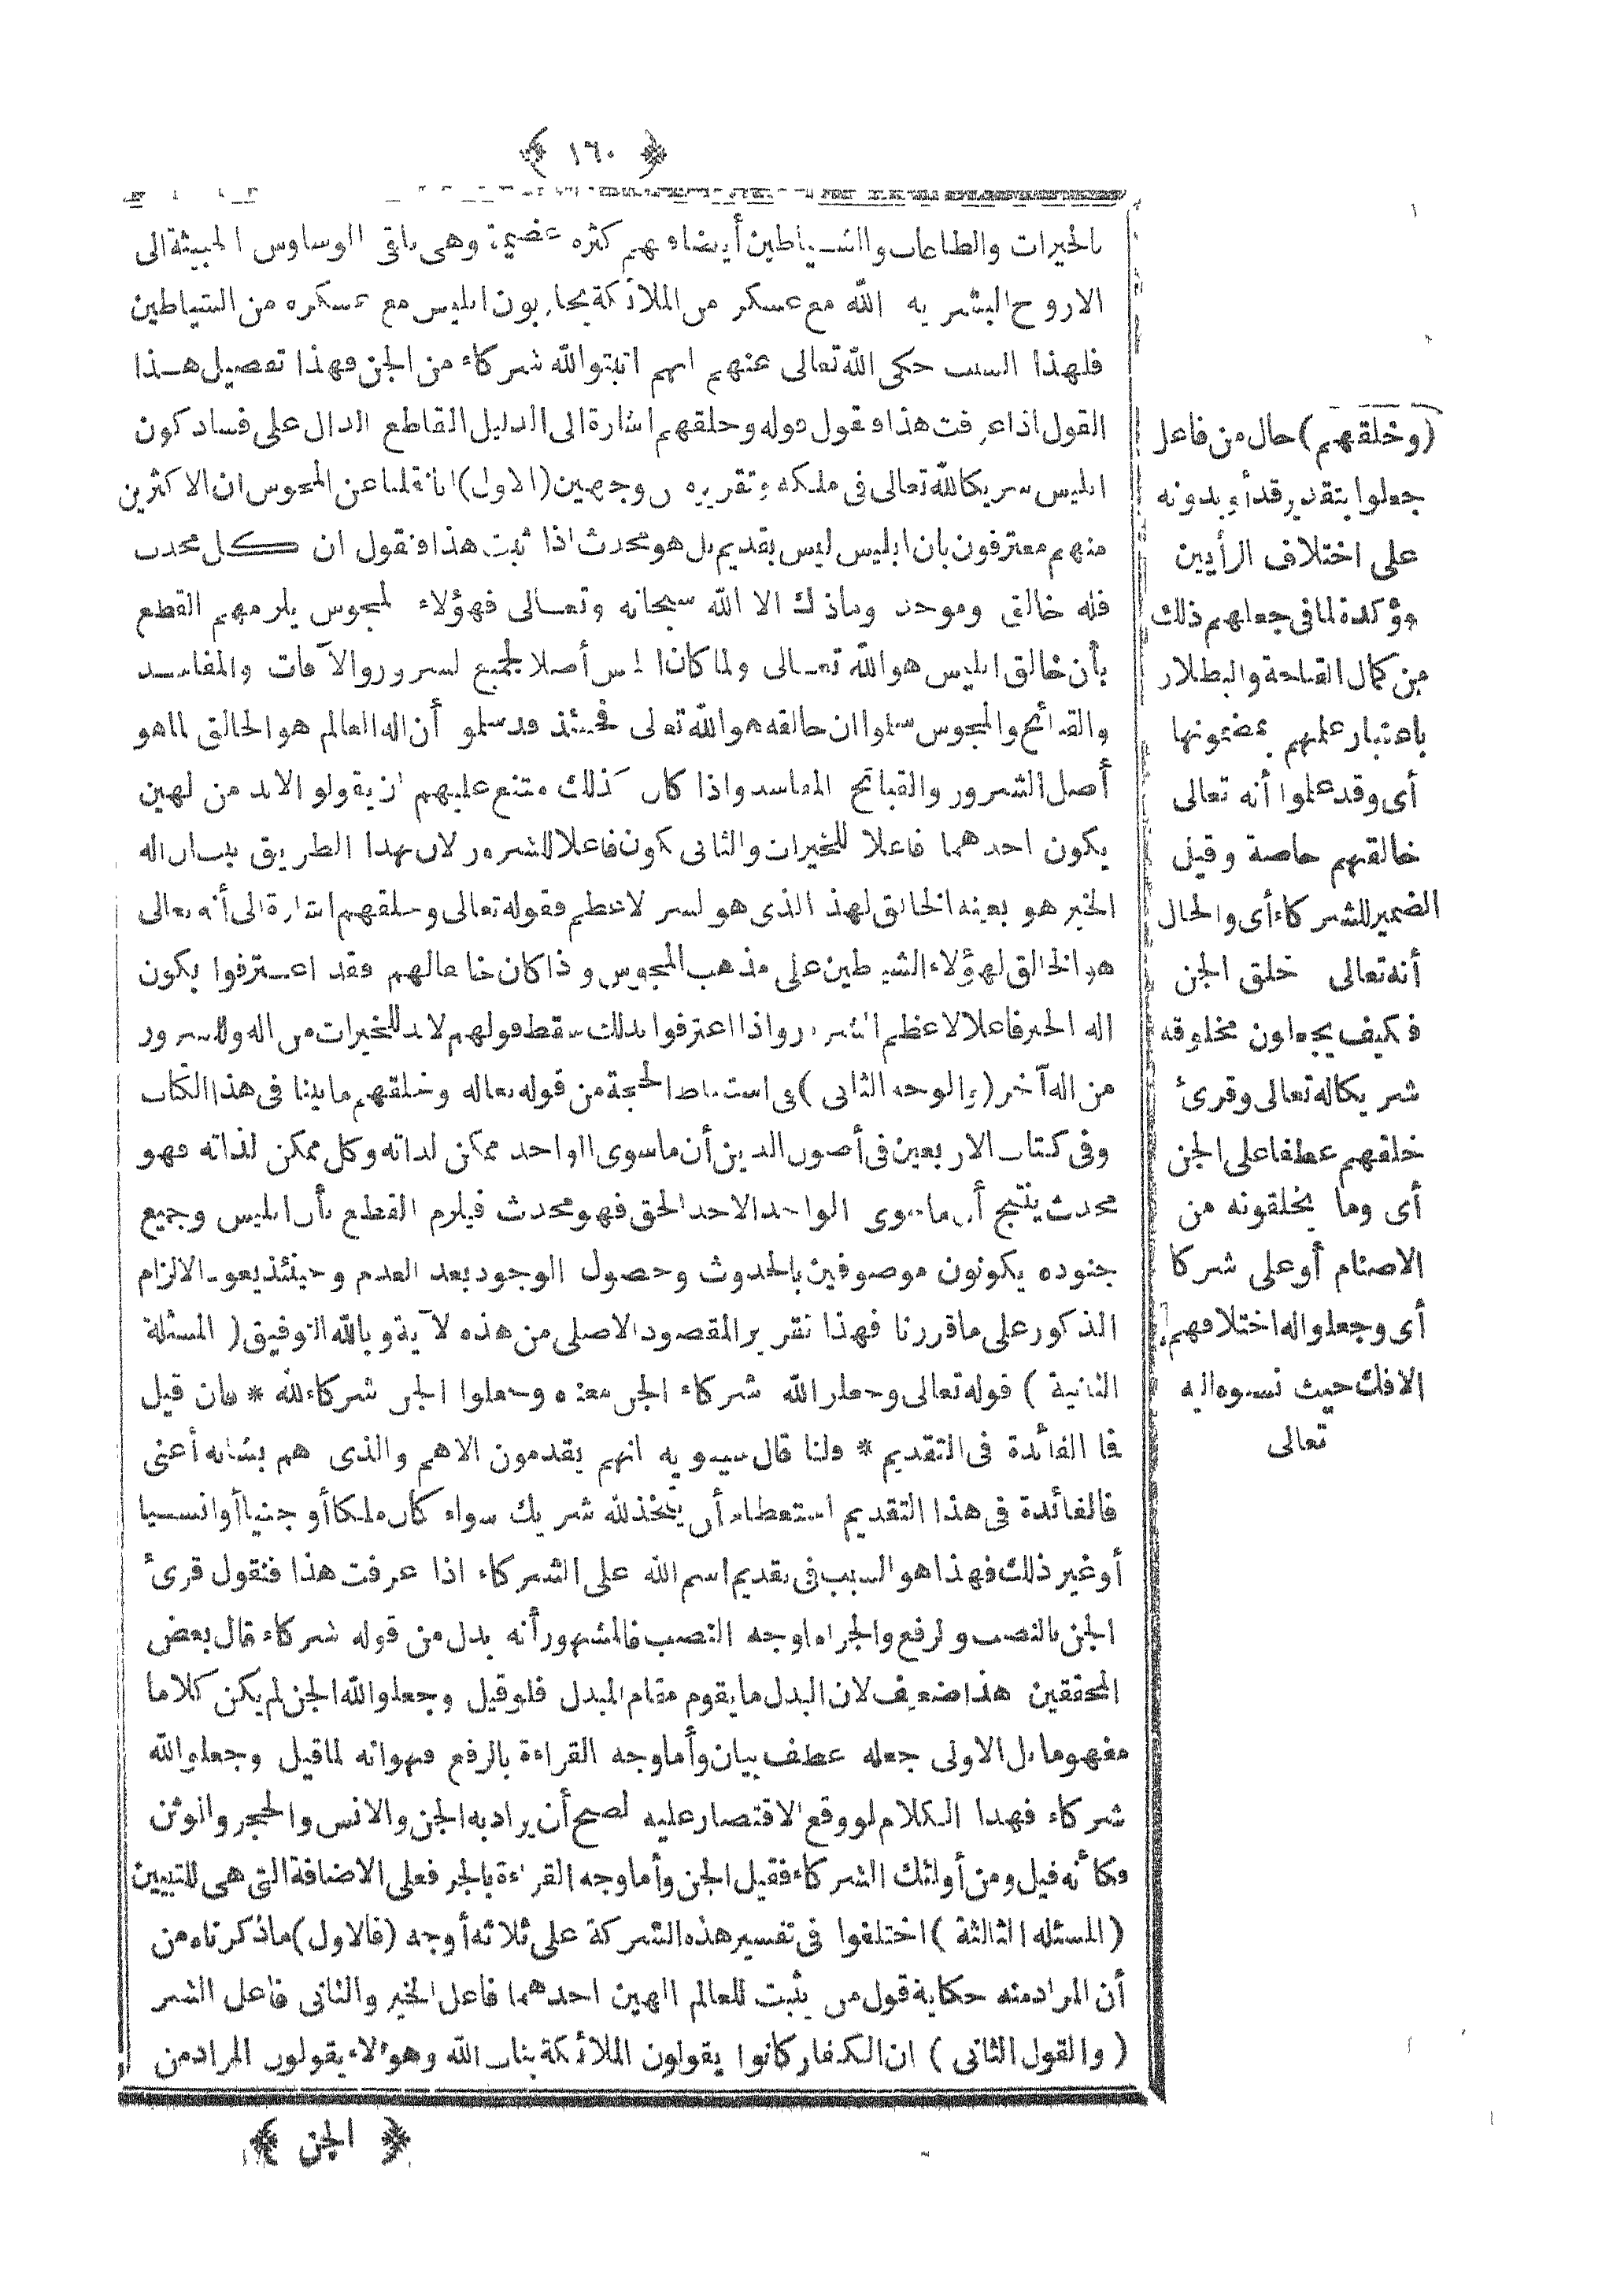 ﴿ ١٦٠ ﴾
بالخيرات والطاعات والشياطين أيضا فيهم كثرة عظيمة وهى تلقى الوساوس الخبيثة الى
الارواح البشرية والله مع عسكره من الملائكة يحاربون ابليس مع عسكره من الشياطين
فلهذا السبب حكى الله تعالى عنهم انهم اثبتوا لله شركاء من الجن فهذا تفصيل هذا
القول اذا عرفت هذا فنقول قوله وخلقهم اشارة الى الدليل القاطع الدال على فساد كون
ابليس شريكا لله تعالى فى ملكه وتقريره من وجهين (الاول) انا نقلنا عن المجوس ان الاكثرين
منهم معترفون بان ابليس ليس بقديم بل هو محدث اذا ثبت هذا فنقول ان كل محدث
فله خالق وموجد وماذلك الا الله سبحانه وتعالى فهؤلاء المجوس يلزمهم القطع
بأن خالق ابليس هو الله تعالى ولما كان ابليس أصلا لجميع الشرور والآفات والمفاسد
والقبائح والمجوس سلموا ان خالقه هو الله تعالى فحينئذ قد سلموا أن اله العالم هو الخالق لما هو
أصل الشرور والقبائح والمفاسد واذا كان كذلك امتنع عليهم ان يقولوا لابد من الهين
يكون احدهما فاعلا للخيرات والثانى يكون فاعلا للشرور لان بهذا الطريق ثبت ان اله
الخير هو بعينه الخالق لهذا الذى هو الشر الاعظم فقوله تعالى وخلقهم اشارة الى أنه تعالى
هو الخالق لهؤلاء الشياطين على مذهب المجوس واذا كان خالقا لهم فقد اعترفوا بكون
اله الخير فاعلا لاعظم الشرور واذا اعترفوا بذلك سقط قولهم لابد للخيرات من اله وللشرور
من اله آخر (والوجه الثانى) فى استنباط الحجة من قوله تعالى وخلقهم مابينا فى هذا الكتاب
وفى كتاب الاربعين فى أصول الدين أن ماسوى الواحد ممكن لذاته وكل ممكن لذاته فهو
محدث ينتج أن ماسوى الواحد الاحد الحق فهو محدث فيلزم القطع بأن ابليس وجميع
جنوده يكونون موصوفين بالحدوث وحصول الوجود بعد العدم وحينئذ يعود الالزام
المذكور على ماقررنا فهذا تقرير المقصود الاصلى من هذه الآية وبالله التوفيق (المسئلة
الثانية) قوله تعالى وجعلوا لله شركاء الجن معناه وجعلوا الجن شركاء لله * فان قيل
فما الفائدة فى التقديم * قلنا قال سيبويه انهم يقدمون الاهم والذى هم بشانه أعنى
فالفائدة فى هذا التقديم استعظام أن يتخذ لله شريك سواء كان ملكا أو جنيا أو انسيا
أو غير ذلك فهذا هو السبب فى تقديم اسم الله على الشركاء اذا عرفت هذا فنقول قرئ
الجن بالنصب والرفع والجر اما وجه النصب فالمشهور أنه بدل من قوله شركاء قال بعض
المحققين هذا ضعيف لان البدل مايقوم مقام المبدل فلو قيل وجعلوا لله الجن لم يكن كلاما
مفهوما بل الاولى جعله عطف بيان وأما وجه القراءة بالرفع فهو انه لما قيل وجعلوا لله
شركاء فهذا الكلام لو وقع الاقتصار عليه لصح أن يراد به الجن والانس والحجر والوثن
فكأنه قيل ومن أولئك الشركاء فقيل الجن وأما وجه القراءة بالجر فعلى الاضافة التى هى للتبيين
(المسئلة الثالثة) اختلفوا فى تفسير هذه الشركة على ثلاثة أوجه (فالاول) ماذكرناه من
أن المراد منه حكاية قول من يثبت للعالم الهين احدهما فاعل الخير والثانى فاعل الشر
(والقول الثانى) ان الكفار كانوا يقولون الملائكة بنات الله وهؤلاء يقولون المراد من
﴿ الجن ﴾
(وخلقهم) حال من فاعل
جعلوا بتقدير قد أو بدونه
على اختلاف الرأيين
مؤكدة لما فى جعلهم ذلك
من كمال القباحة والبطلان
باعتبار علمهم بمضمونها
أى وقد علموا أنه تعالى
خالقهم خاصة وقيل
الضمير للشركاء أى والحال
أنه تعالى خلق الجن
فكيف يجعلون مخلوقه
شريكا له تعالى وقرئ
خلقهم عطفا على الجن
أى وما يخلقونه من
الاصنام أو على شركا
أى وجعلوا له اختلاقهم
الافك حيث نسبوه اليه
تعالى